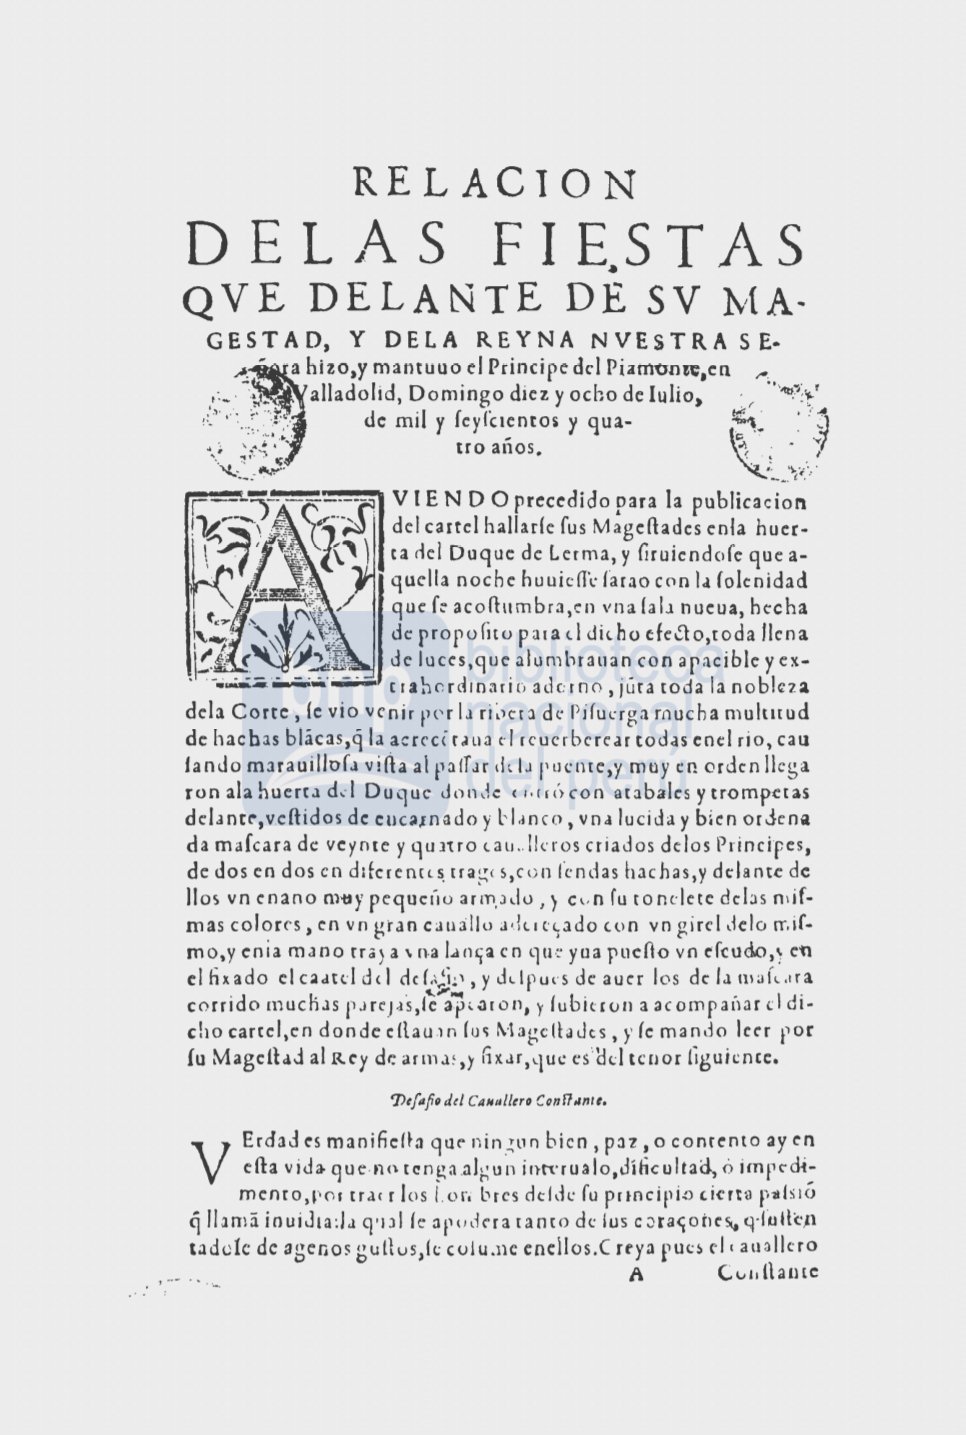 RELACION
DELAS FIESTAS
QVE DELANTE DE SV MA-
GESTAD, Y DELA REYNA NVESTRA SE-
ñora hizo,y mantuuo el Principe del Piamonte,en
Valladolid, Domingo diez y ocho de Iulio,
de mil y ſeyſcientos y qua-
tro años.
AVIENDO precedido para la publicacion
del cartel hallarſe ſus Mageſtades enla huer-
ta del Duque de Lerma, y ſiruiendoſe que a-
quella noche huuieſſe ſarao con la ſolenidad
que ſe acoſtumbra,en vna ſala nueua, hecha
de propoſito para el dicho efecto,toda llena
de luces,que alumbrauan con apacible y ex-
trahordinario adorno, jũta toda la nobleza
dela Corte, ſe vio venir por la ribera de Piſuerga mucha multitud
de hachas blãcas,q̃ la acrecẽtaua el reuerberear todas enel rio, cau
ſando marauilloſa viſta al paſſar dela puente,y muy en orden llega
ron ala huerta del Duque donde entró con atabales y trompetas
delante,veſtidos de encarnado y blanco, vna lucida y bien ordena
da maſcara de veynte y quatro caualleros criados delos Principes,
de dos en dos en diferentes trages,con ſendas hachas,y delante de
llos vn enano muy pequeño armado, y con ſu tonelete delas miſ-
mas colores, en vn gran cauallo adereçado con vn girel delo miſ-
mo,y enla mano traya vna lança en que yua pueſto vn eſcudo,y en
el fixado el caatel del deſafio, y deſpues de auer los de la maſcara
corrido muchas parejas,ſe apearon, y ſubieron a acompañar el di-
cho cartel,en donde eſtauan ſus Mageſtades, y ſe mando leer por
ſu Mageſtad al Rey de armas,y fixar,que es del tenor ſiguiente.
Deſafio del Cauallero Conſtante.
VErdad es manifieſta que ningun bien, paz, o contento ay en
eſta vida que no tenga algun interualo,dificultad, ó impedi-
mento,por traer los hombres deſde ſu principio cierta paſsiõ
q̃ llamã inuidia:la qual ſe apodera tanto de ſus coraçones, q ſuſtẽn
tadoſe de agenos guſtos,ſe coſume enellos.Creya pues el cauallero
A Conſtante
biblioteca
nacional
del perú
bnp